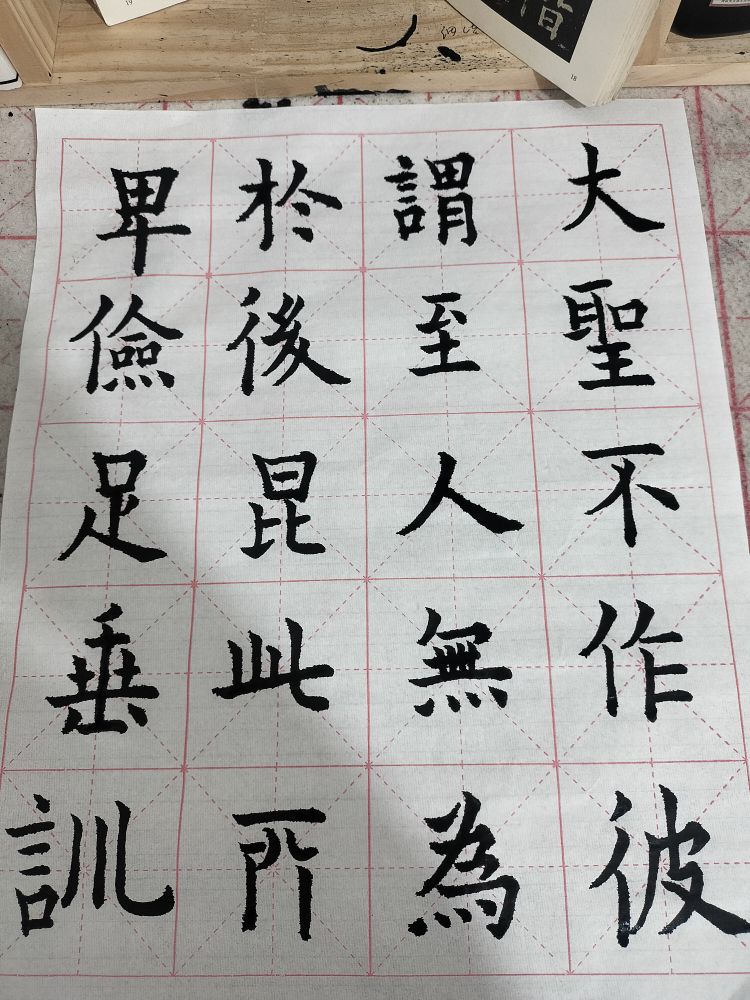 卑儉足垂訓
於後昆此所
謂至人無為
大聖不作彼
19
18